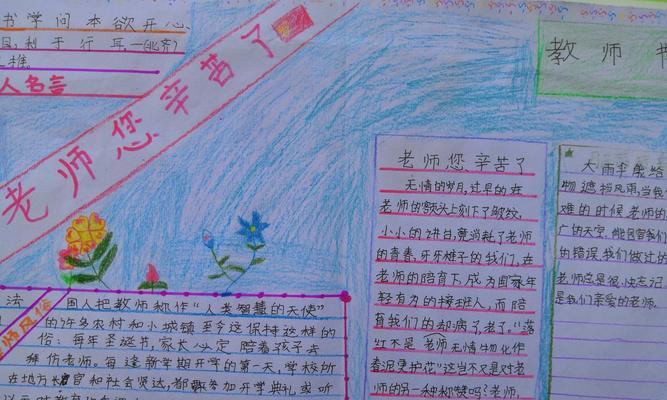 书学问本欲开心
目，利于行耳，—(北齐)
人名言
老师您辛苦了
教师节
老师您、辛苦了
无情的岁月，过早的在
老师的额头上刻下了皱纹，
小小的讲台，竟消耗了老师
的青春，牙牙样子的我们，在
老师的陪育下，成为国家年
轻有为的接班人，而陪
育我们的却病了，老了。"落
红不是 老师无情物化作
春泥更护花"这岂不又是对老
师的另一种称赞吗？老师，
大雨伞能给
物遮挡风雨，当我
难的时候，老师的
广的天空，能包容我们
的错误，我们做过的
老师总是很快忘记
是我们亲爱的老师.
师风俗
法
国人把教师称作"人类智慧的天使"
的许多农村和小城镇至今还保持这样的
俗：每年圣诞节，家长必定陪着孩子去
拜访老师。每逢新学期开学的第一天，学校所
在地方长官和社会贤达，都要参加开学典礼或听